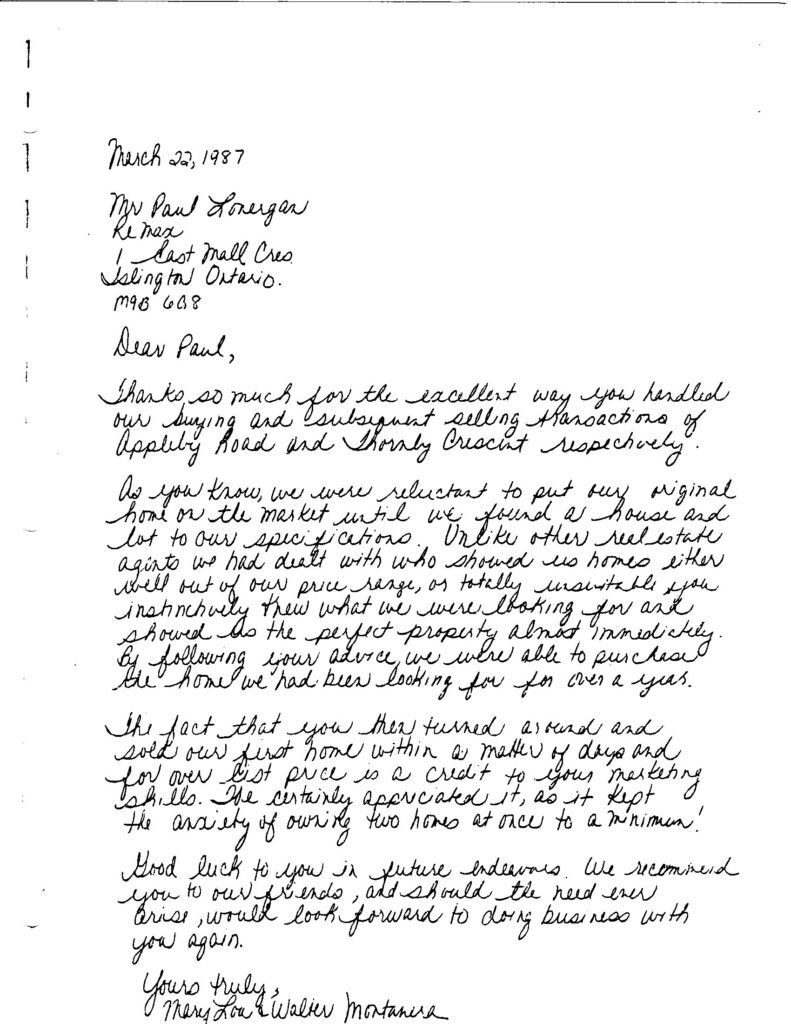 March 22, 1987
Mr Paul Lonergan
Re Max
1 East Mall Cres.
Islington Ontario.
M9B 6G8
Dear Paul,
Thanks so much for the excellent way you handled
our buying and subsequent selling transactions of
Appleby Road and Thornby Crescent respectively.
As you know, we were reluctant to put our original
home on the market until we found a house and
lot to our specifications. Unlike other real estate
agents we had dealt with who showed us homes either
well out of our price range, or totally unsuitable, you
instinctively knew what we were looking for and
showed us the perfect property almost immediately.
By following your advice, we were able to purchase
the home we had been looking for for over a year.
The fact that you then turned around and
sold our first home within a matter of days and
for over list price is a credit to your marketing
skills. We certainly appreciated it, as it kept
the anxiety of owning two homes at once to a minimum!
Good luck to you in future endeavors. We recommend
you to our friends, and should the need ever
arise, would look forward to doing business with
you again.
Yours truly,
Mary Lou & Walter Montanera